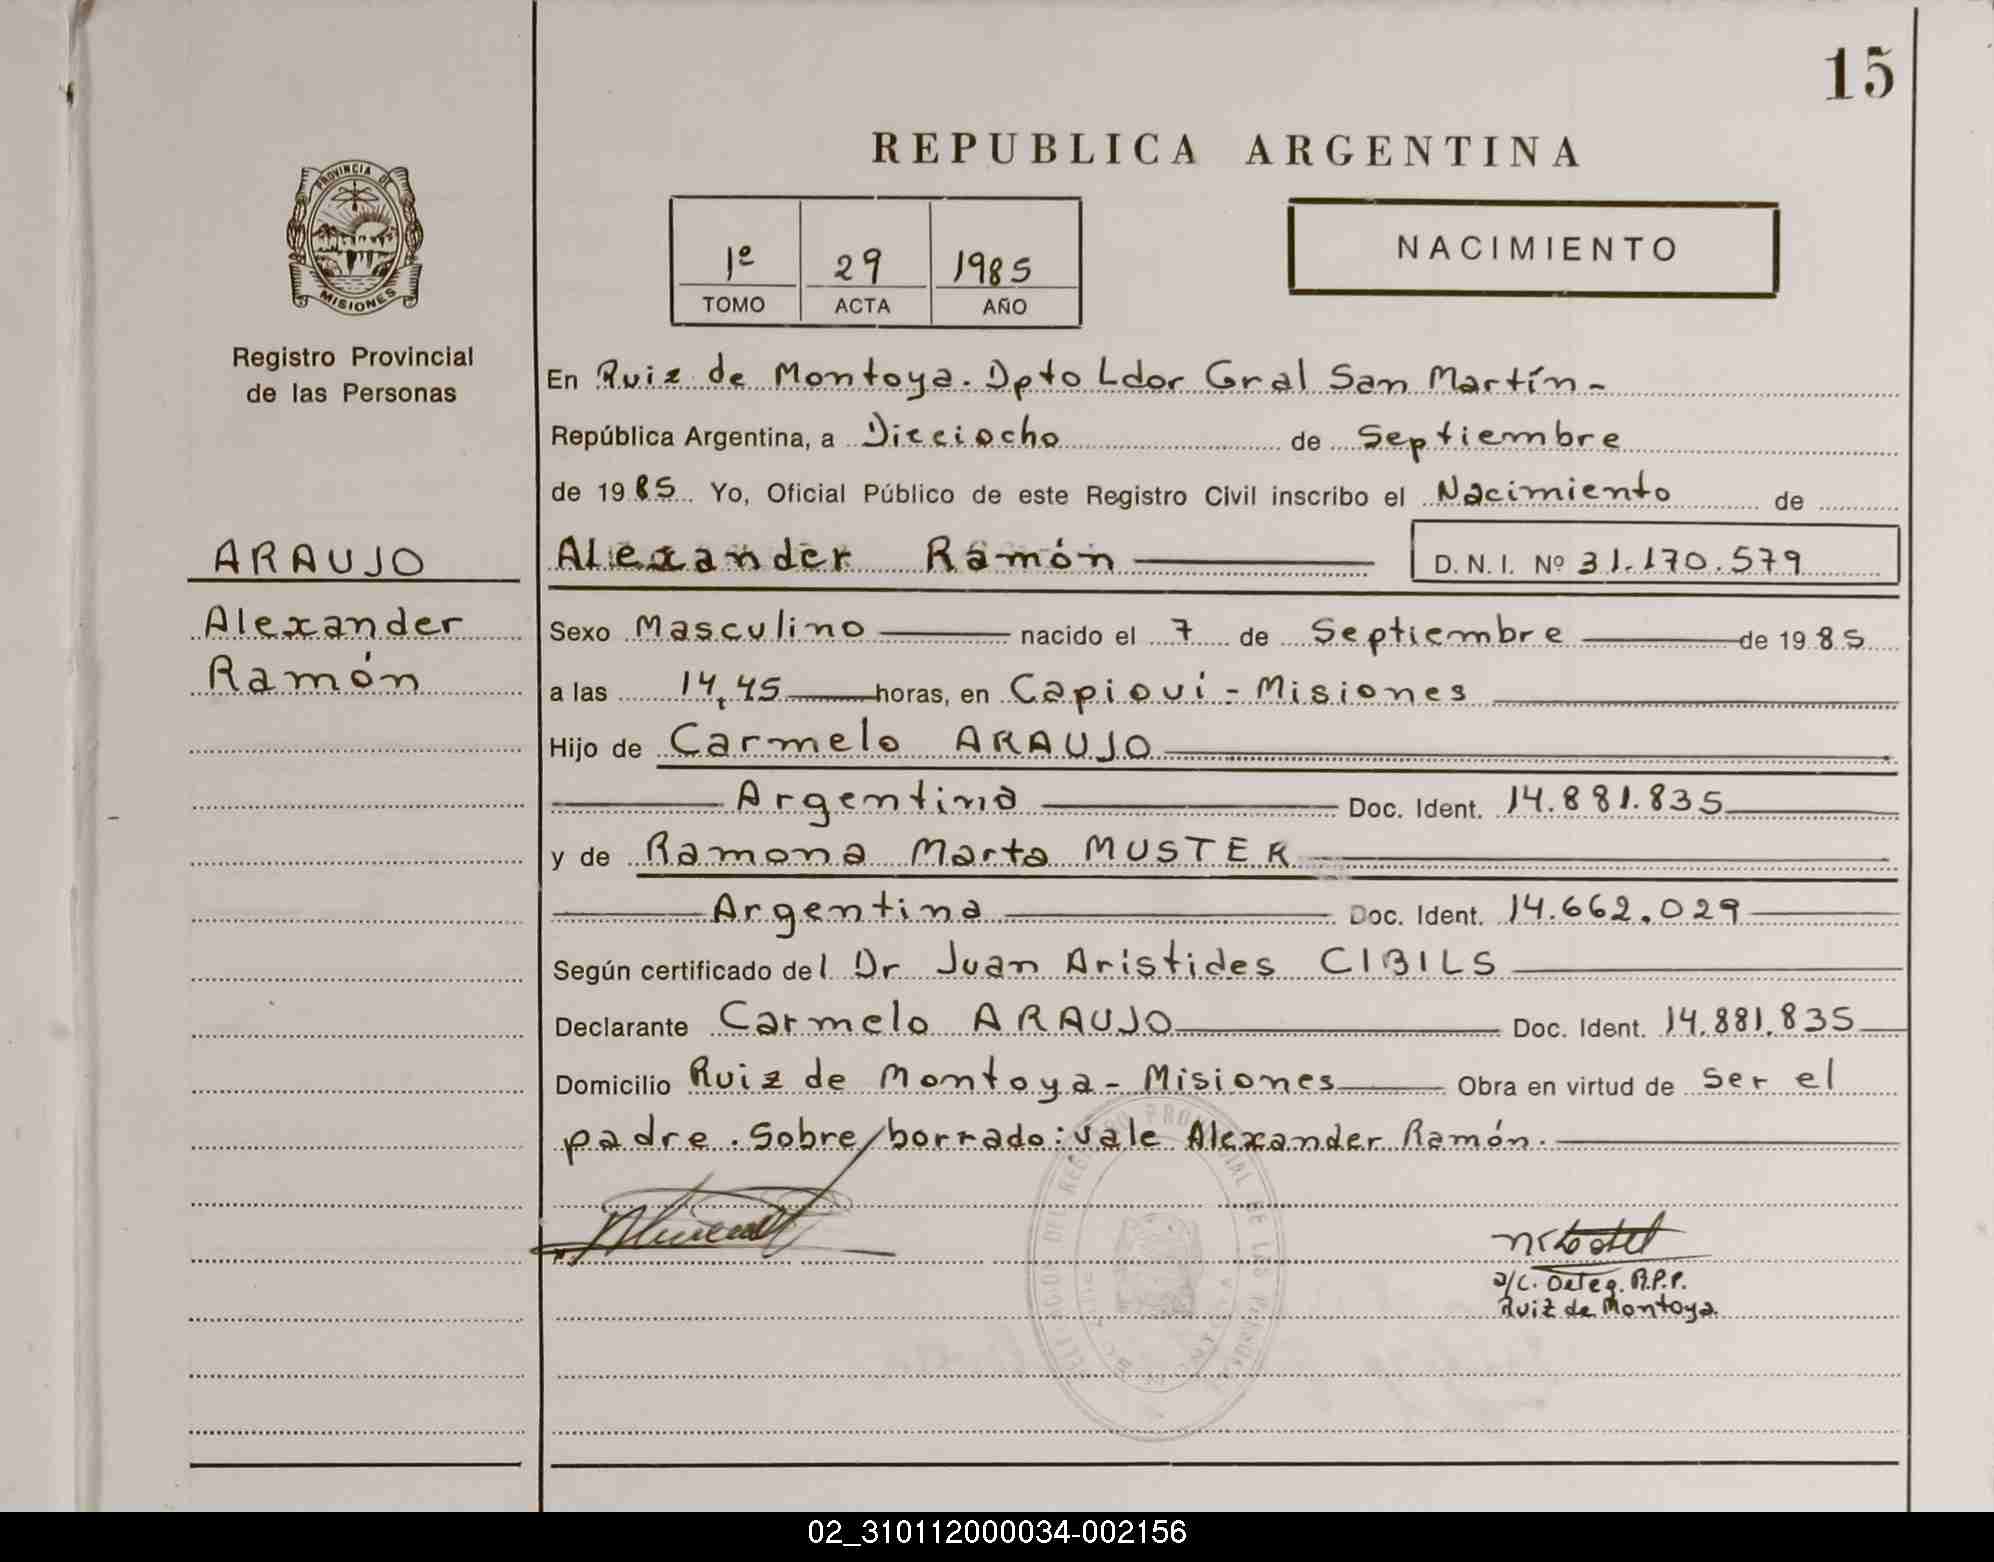 15
REPUBLICA ARGENTINA
PROVINCIA DE
MISIONES
Registro Provincial
de las Personas
1º 29 1985
TOMO ACTA AÑO
NACIMIENTO
En Ruiz de Montoya. Dpto Ldor Gral San Martín-
República Argentina, a Dieciocho de Septiembre
de 1985 Yo, Oficial Público de este Registro Civil inscribo el Nacimiento de
ARAUJO
Alexander
Ramón
Alexander Ramón D.N.I. Nº 31.170.579
Sexo Masculino nacido el 7 de Septiembre de 1985
a las 14,45 horas, en Capioví - Misiones
Hijo de Carmelo ARAUJO
Argentino Doc. Ident. 14.881.835
y de Ramona Marta MUSTER
Argentina Doc. Ident. 14.662.029
Según certificado del Dr Juan Aristides CIBILS
Declarante Carmelo ARAUJO Doc. Ident. 14.881.835
Domicilio Ruiz de Montoya - Misiones Obra en virtud de Ser el
padre. Sobre/borrado: vale Alexander Ramón.
a/c. Deleg. R.P.P.
Ruiz de Montoya.
02_310112000034-002156